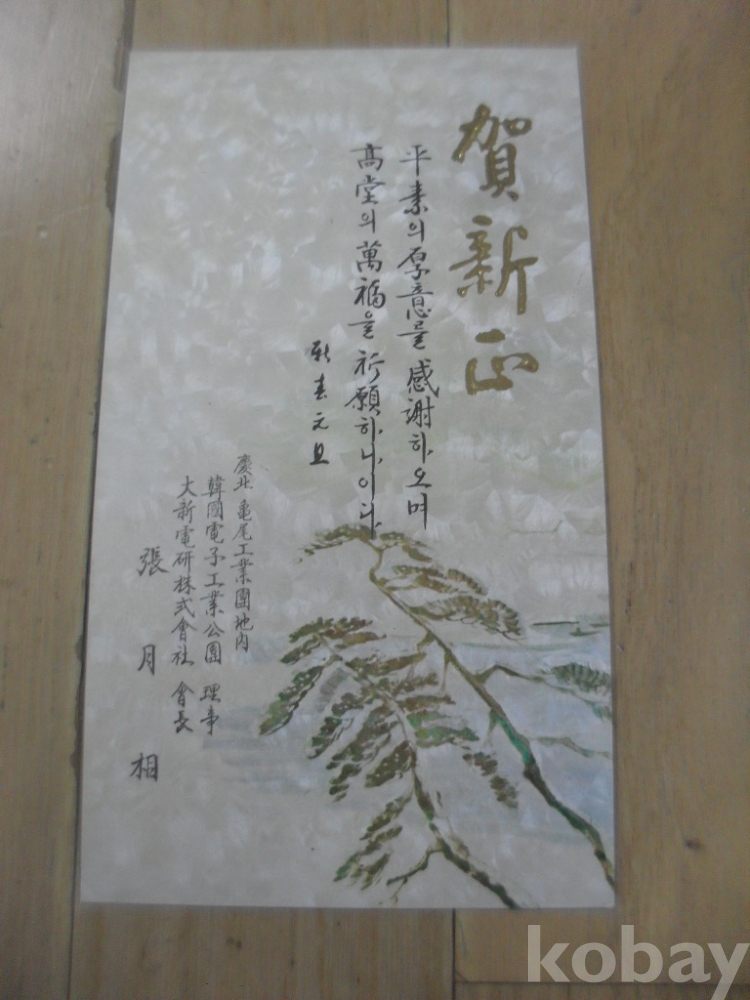 賀新正
平素의 厚意를 感謝하오며
高堂의 萬福을 祈願하나이다
新春元旦
慶北 龜尾工業團地內
韓國電子工業公團 理事
大新電研株式會社 會長
張月相
kobay